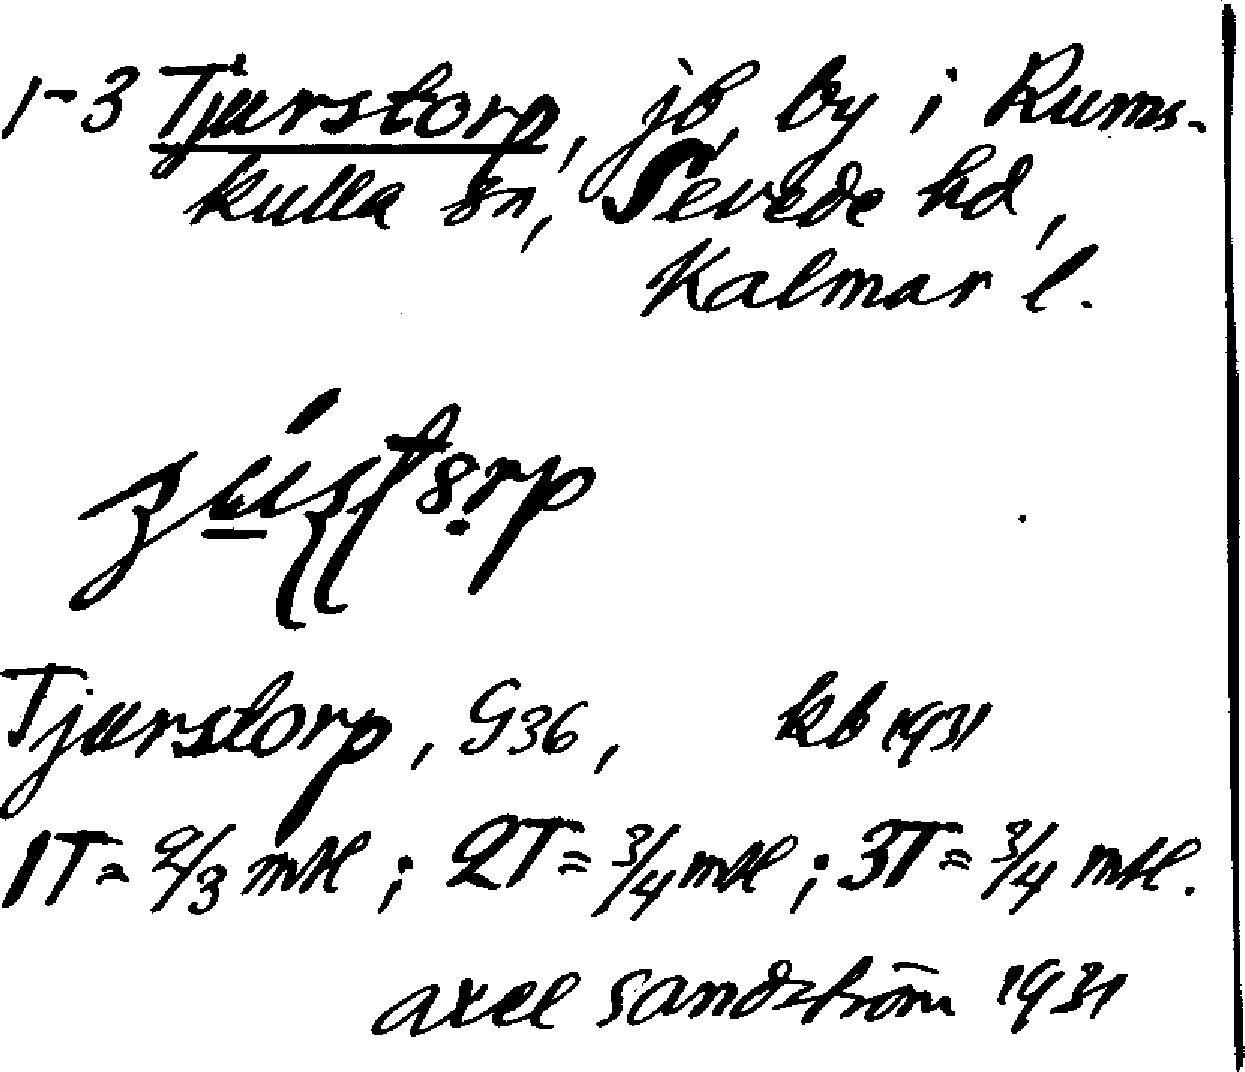 1-3 Tjurstorp, jb, by i Rums-
kulla sn, Sevede hd,
Kalmar l.
Tjurstorp, G36, kb 1931
1T = 2/3 mtl ; 2T = 3/4 mtl ; 3T = 3/4 mtl.
Axel Sandström 1931